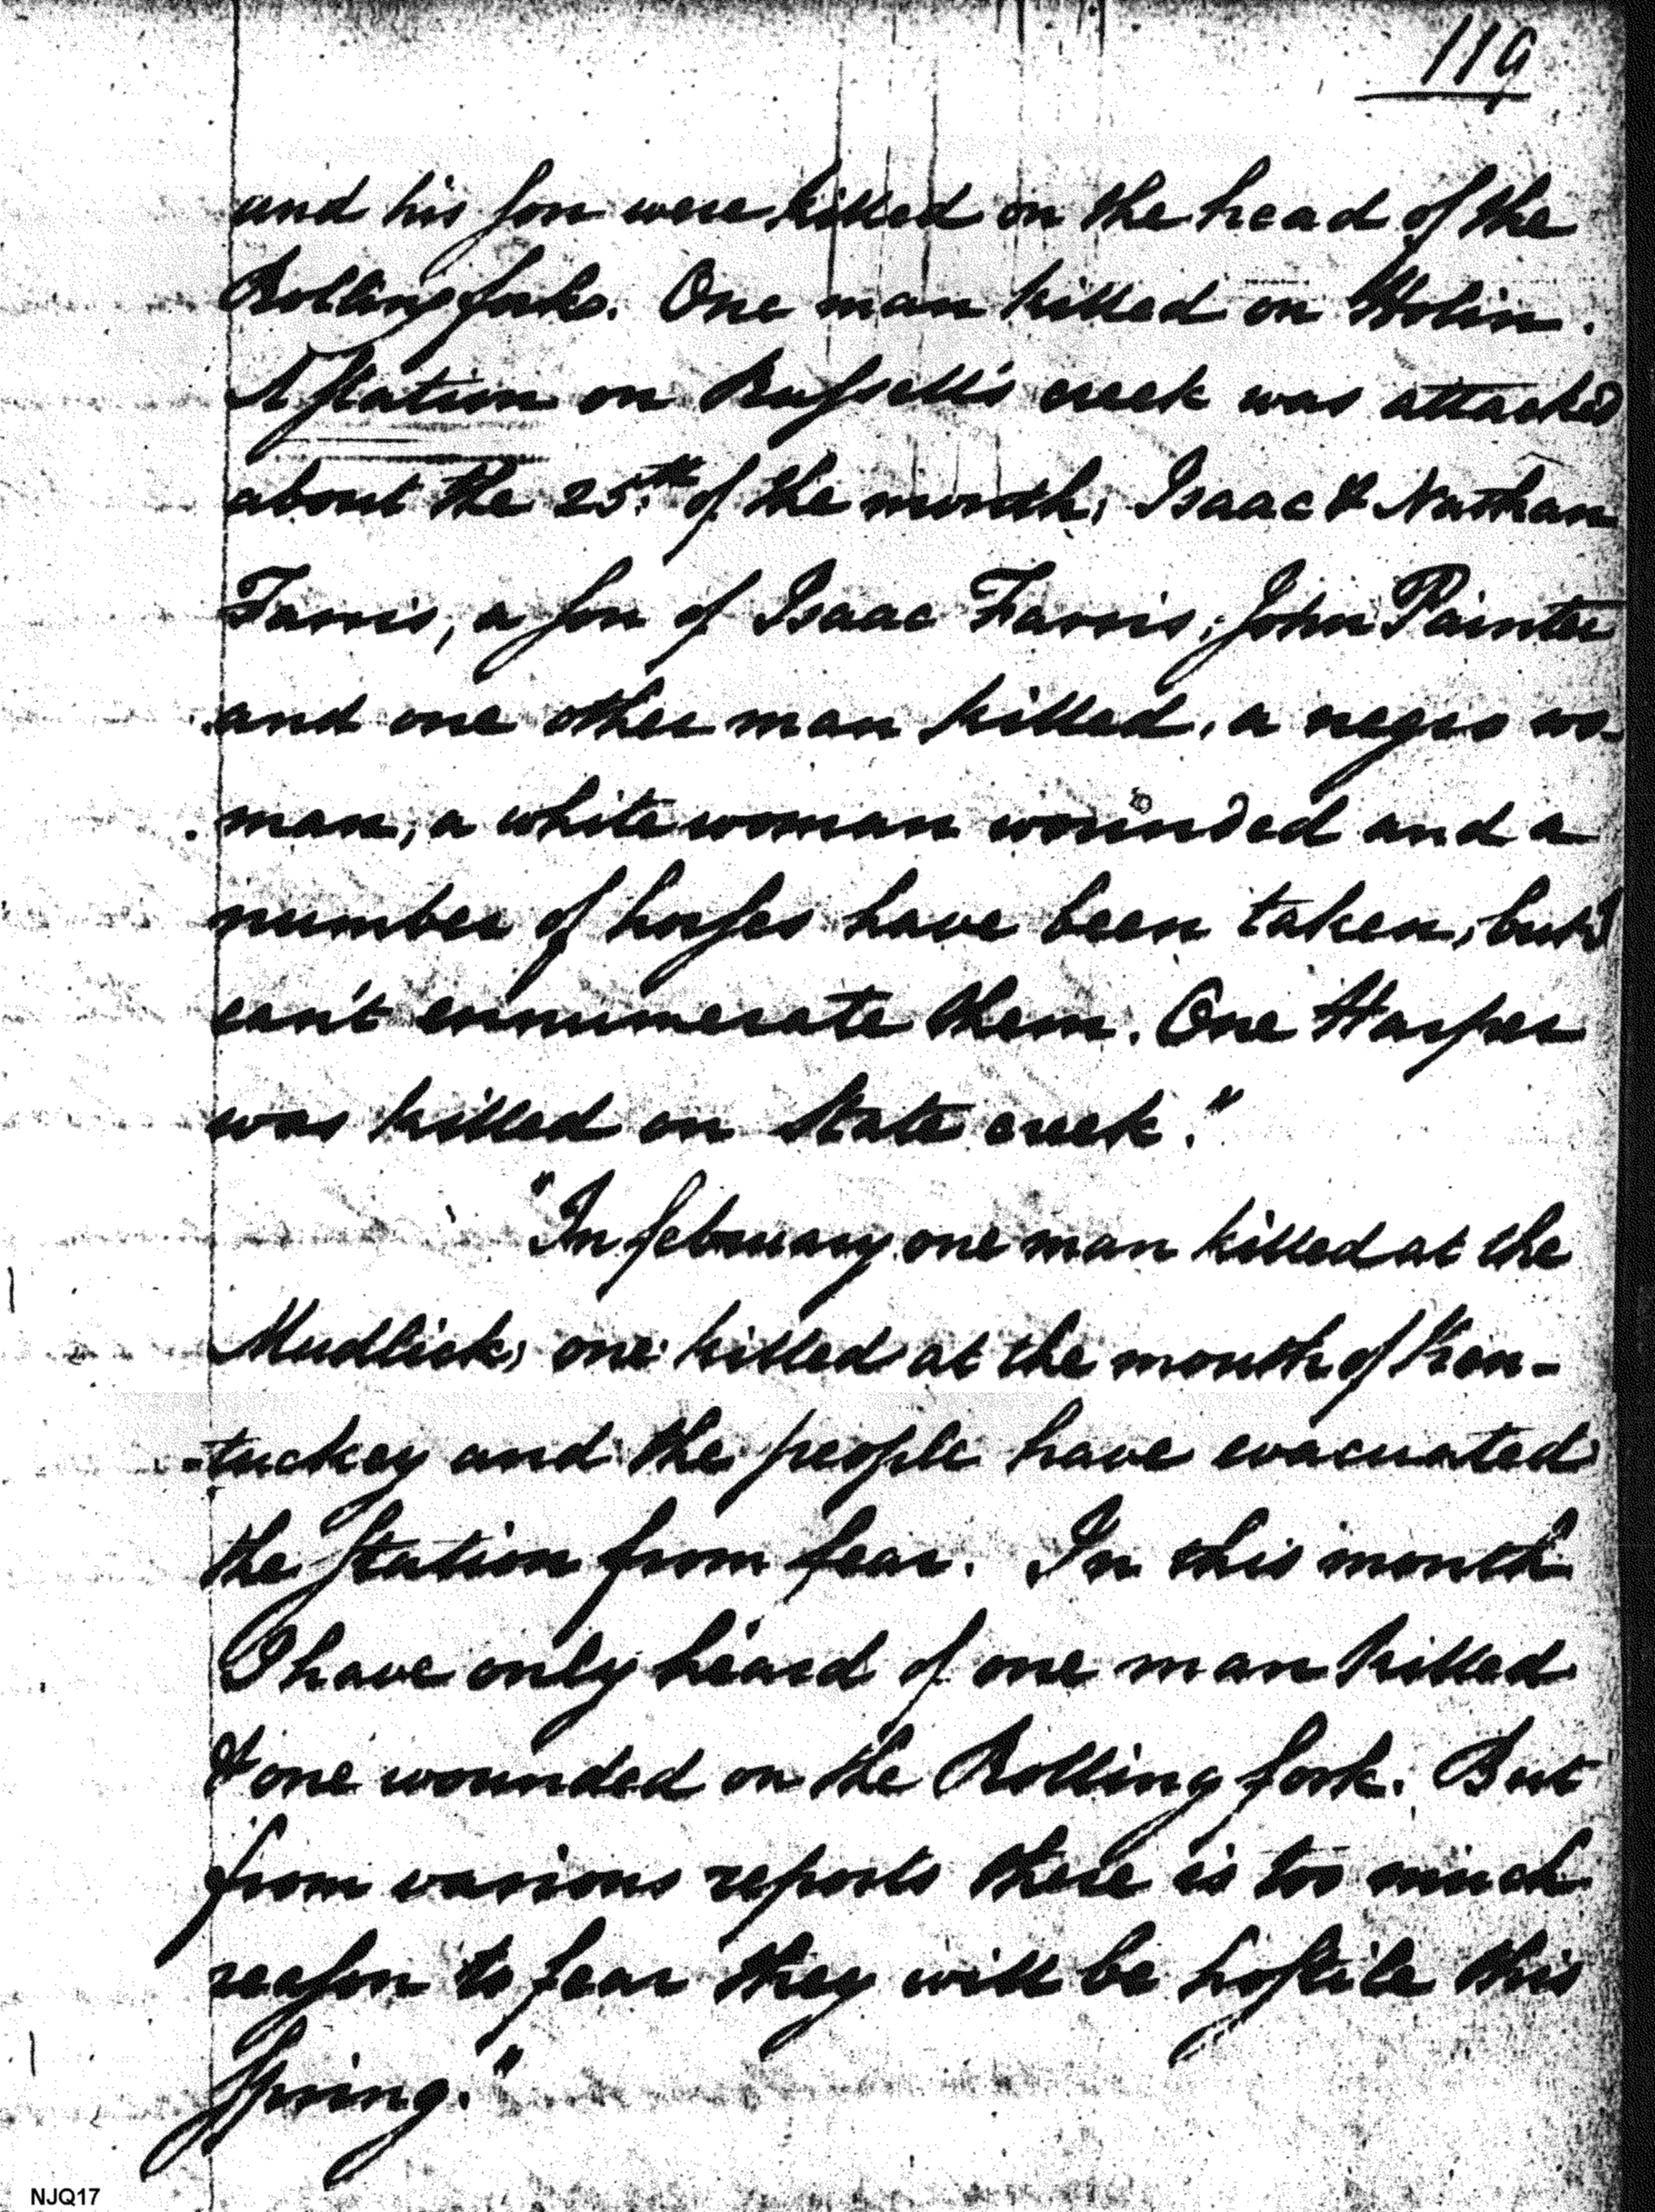 119
and his son were killed on the head of the
Rolling forks. One man killed on Nolin.
A station on Russell's creek was attacked
about the 25th of the month; Isaac & Nathan
Farris, a son of Isaac Farris, John Painter
and one other man killed, a negro wo-
man, a white woman wounded and a
number of horses have been taken, but I
can't ennumerate them. One Harper
was killed on State creek."
"In february one man killed at the
Mudlick, one killed at the mouth of Ken-
-tuckey and the people have evacuated
the Station from fear. In this month
I have only heard of one man killed
& one wounded on the Rolling fork. But
from various reports there is too much
reason to fear they will be hostile this
Spring."
NJQ17